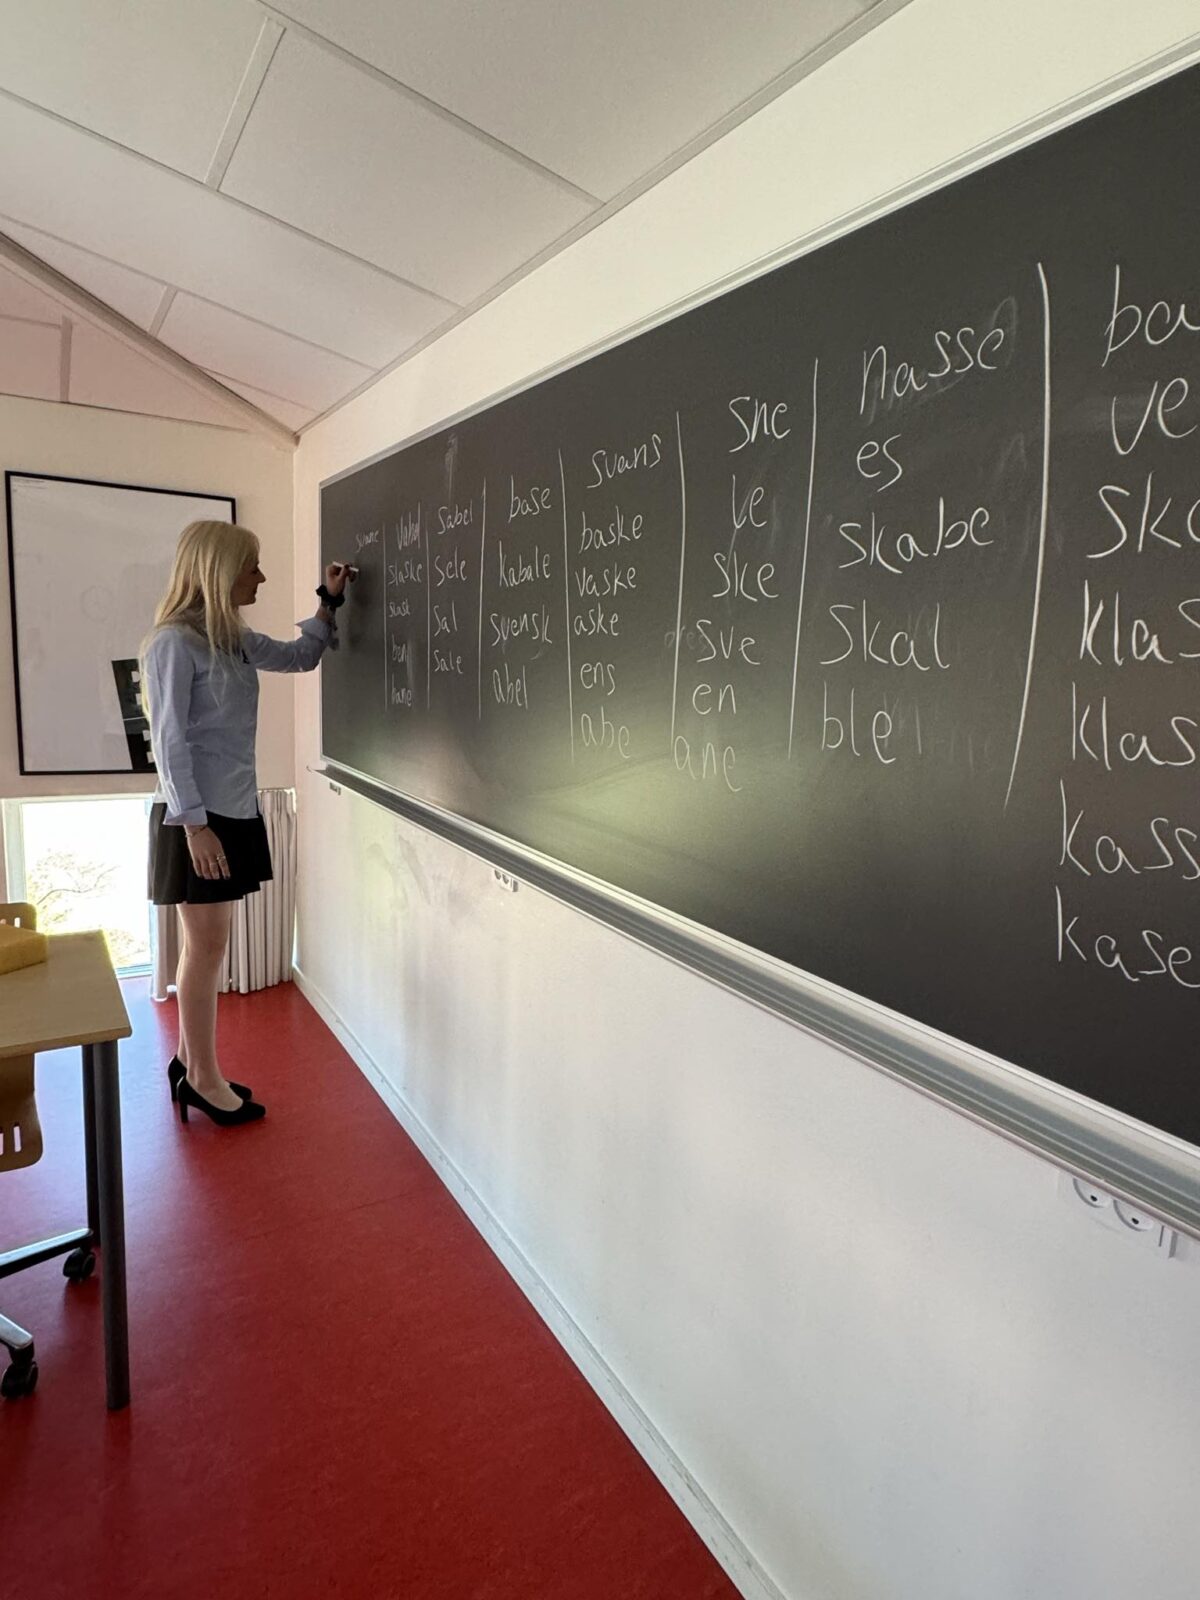 svane
slaske
slask
bane
sabel
sele
sal
sale
base
kabale
svensk
abel
svans
baske
vaske
aske
ens
abe
sne
le
ske
sve
en
ane
hasse
es
skabe
skal
ble
ba
ve
ska
klas
klas
kass
kase